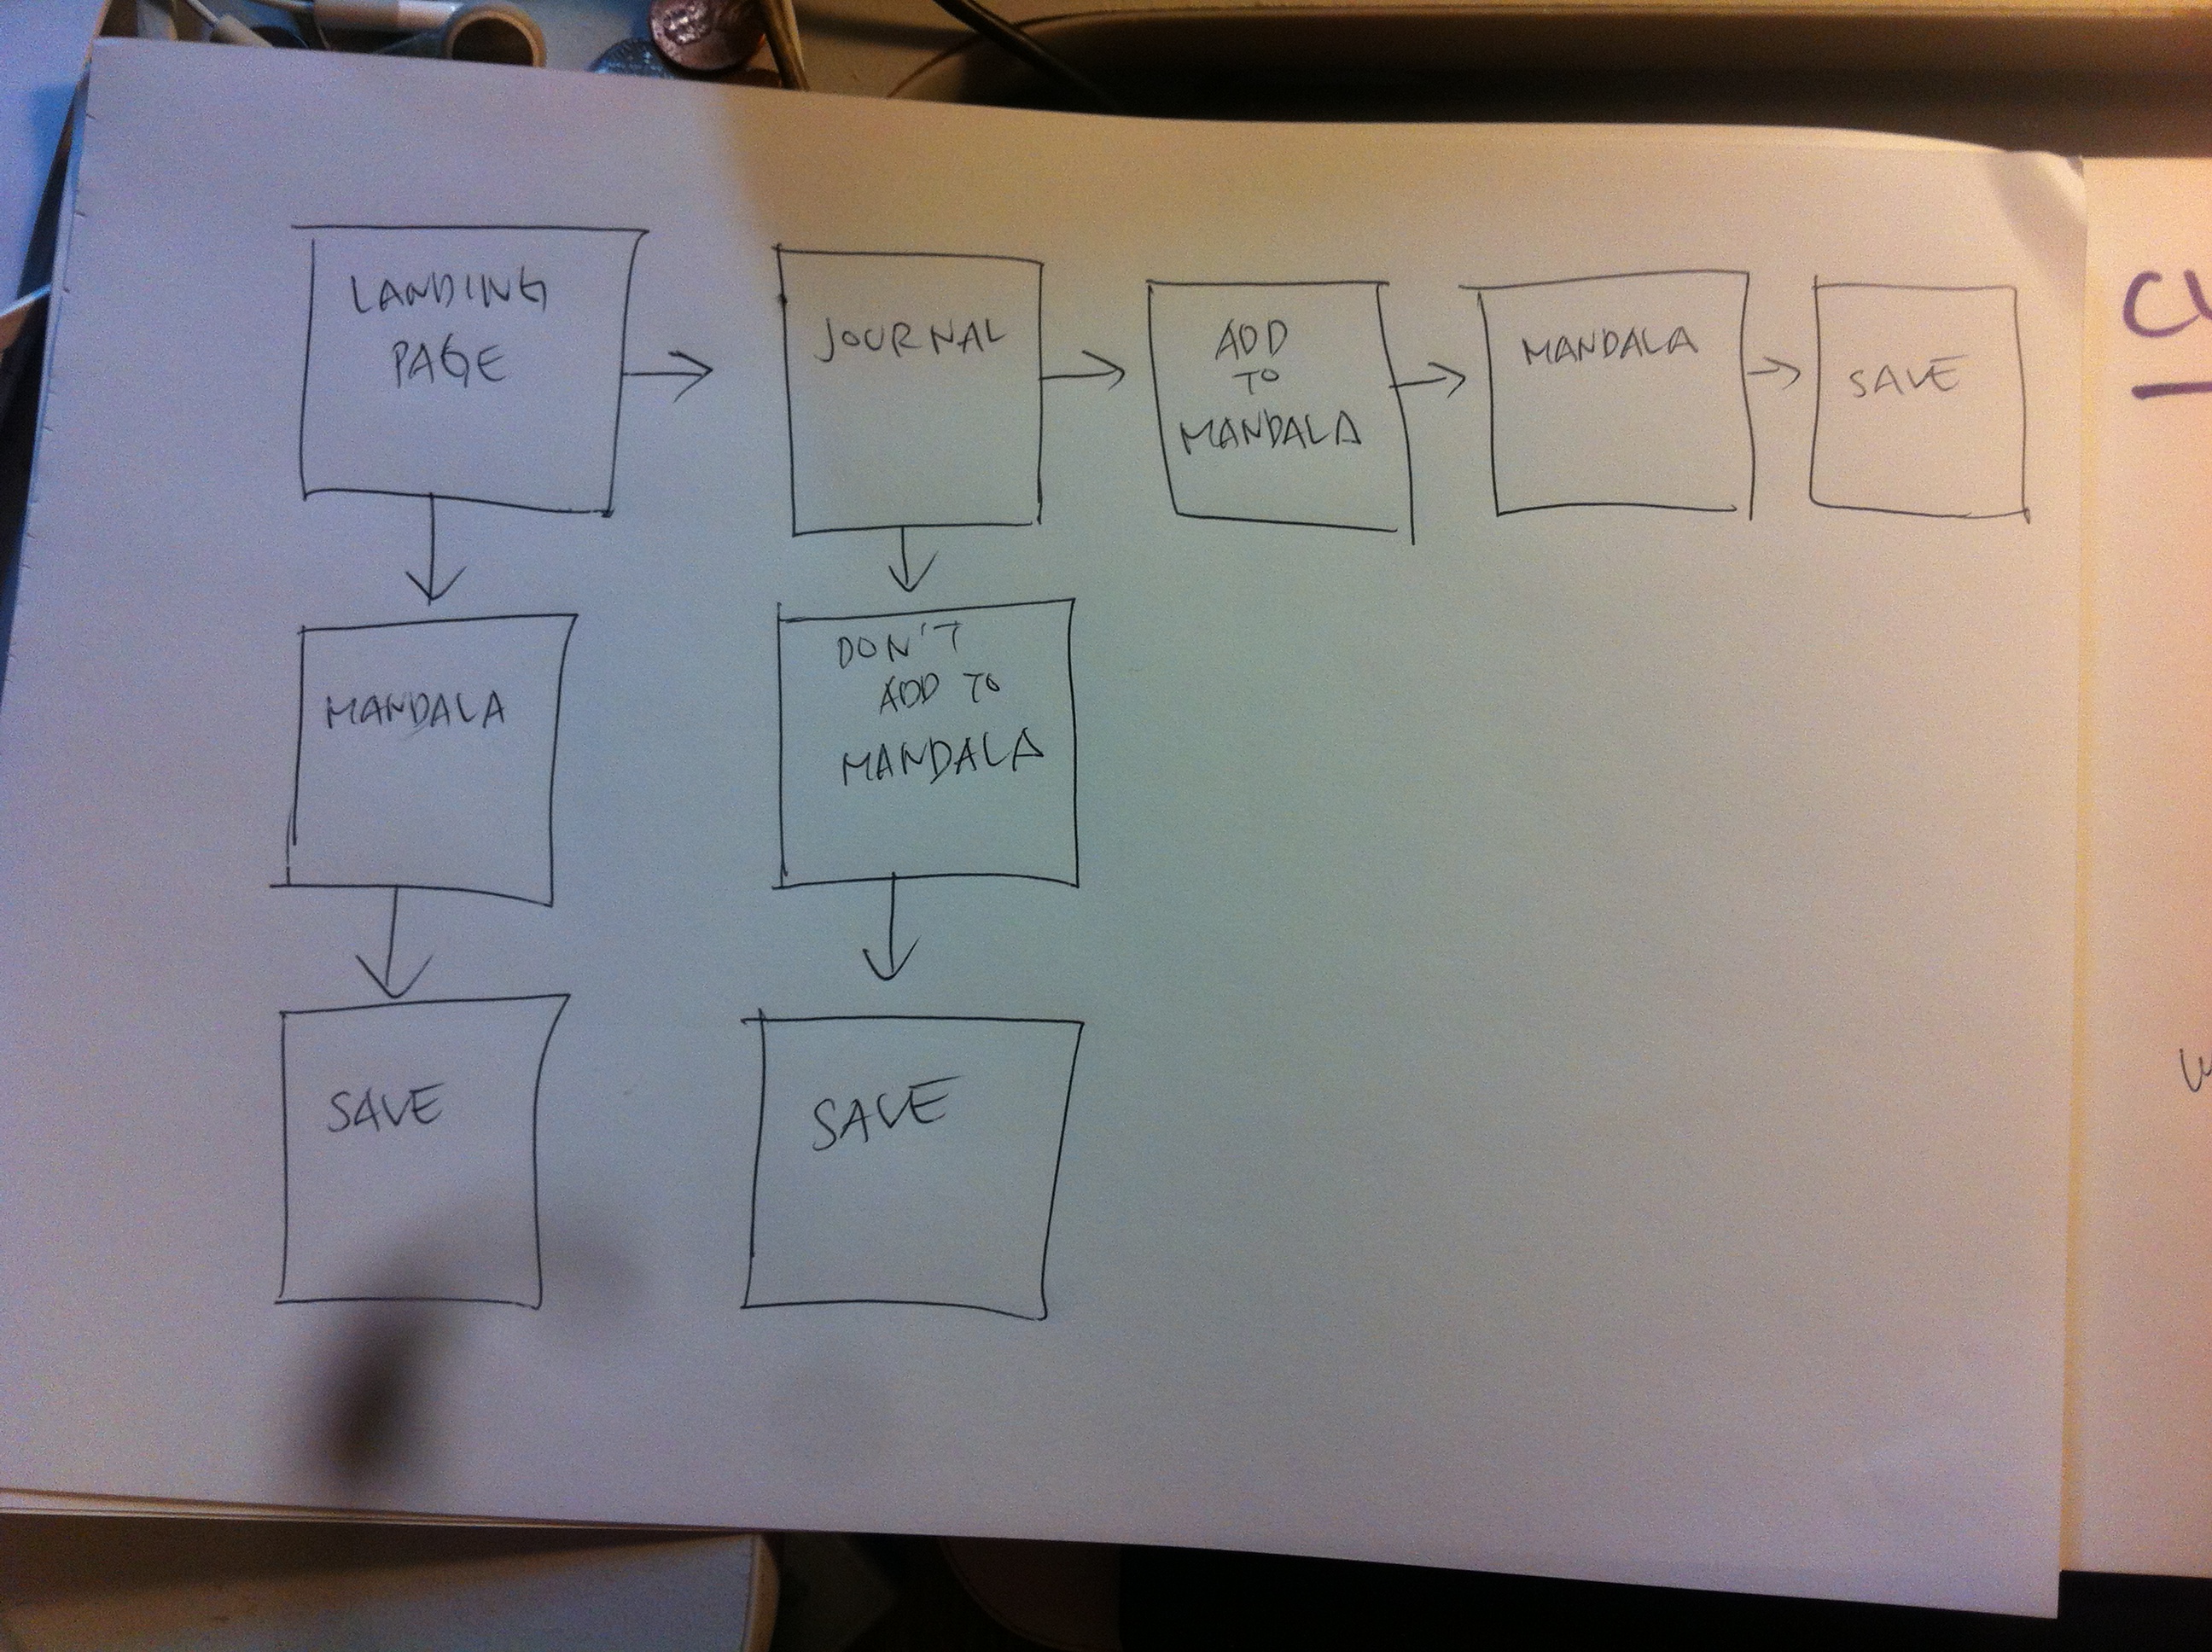 LANDING
PAGE
JOURNAL
ADD
TO
MANDALA
MANDALA
SAVE
MANDALA
DON'T
ADD TO
MANDALA
SAVE
SAVE